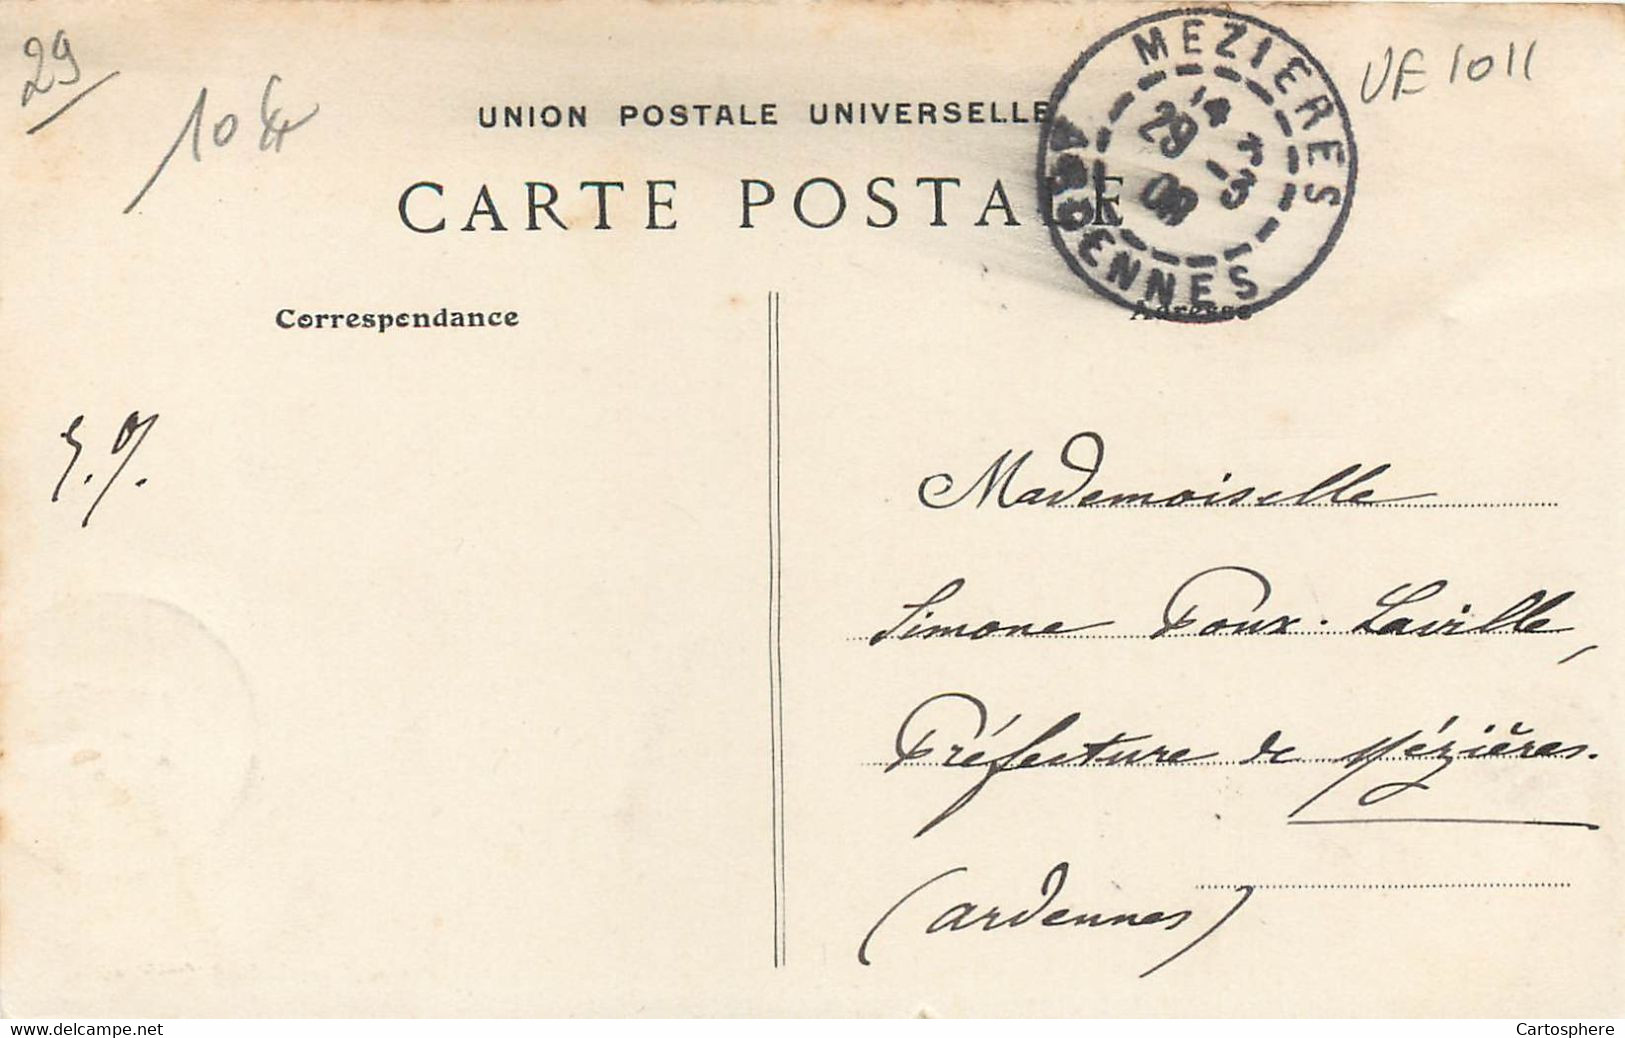 29
10
VE 1011
UNION POSTALE UNIVERSELLE
CARTE POSTALE
MEZIERES
29 -3
08
ARDENNES
Correspondance
Adresse
Mademoiselle
Simone Poux-Laville,
Préfecture de Mézières.
(Ardennes)
www.delcampe.net
Cartosphere